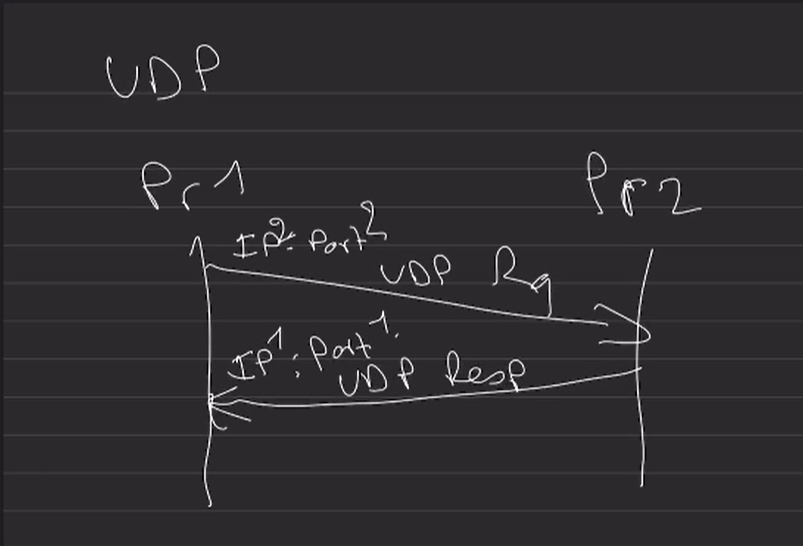 UDP
Pr1
Pr2
IP²: Port²
UDP Rq
IP¹: Port¹.
UDP Resp